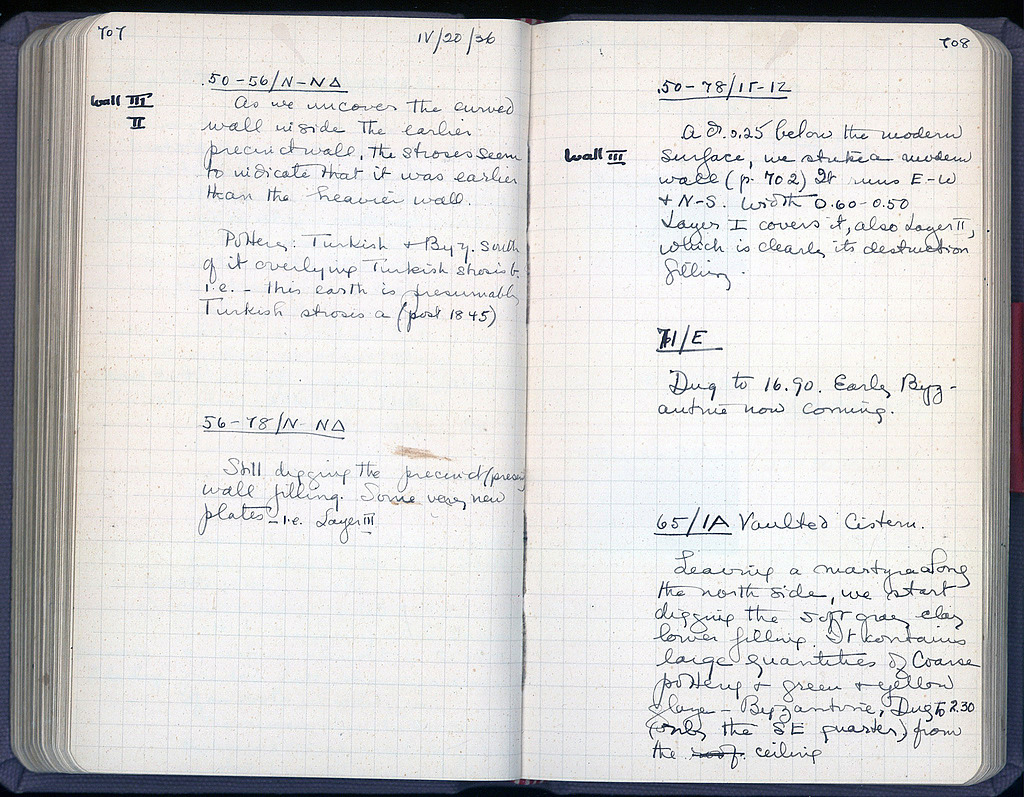 707
IV/20/36
50-56/N-NΔ
Wall III
II
As we uncover the curved
wall inside the earlier
precinct wall, the stroses seem
to indicate that it was earlier
than the heavier wall.
Pottery: Turkish + Byz. South
of it overlying Turkish strosis b
i.e. - this earth is presumably
Turkish strosis a (post 1845)
56-78/N-NΔ
Still digging the precinct/
wall filling. Some very new
plates - i.e. Layer III
708
50-78/
At 0.25 below the modern
Wall III
surface, we strike a modern
wall (p. 702) It runs E-W
+ N-S. Width 0.60-0.50
Layer I covers it, also Layer II,
which is clearly its destruction
filling.
71/E
Dug to 16.90. Early Byz-
antine now coming.
65/IA Vaulted Cistern.
Leaving a martyra along
the north side, we start
digging the soft gray clay
lower filling. It contains
large quantities of Coarse
pottery + green + yellow
glaze - Byzantine. Dug to 2.30
(only the SE quarter) from
the roof ceiling